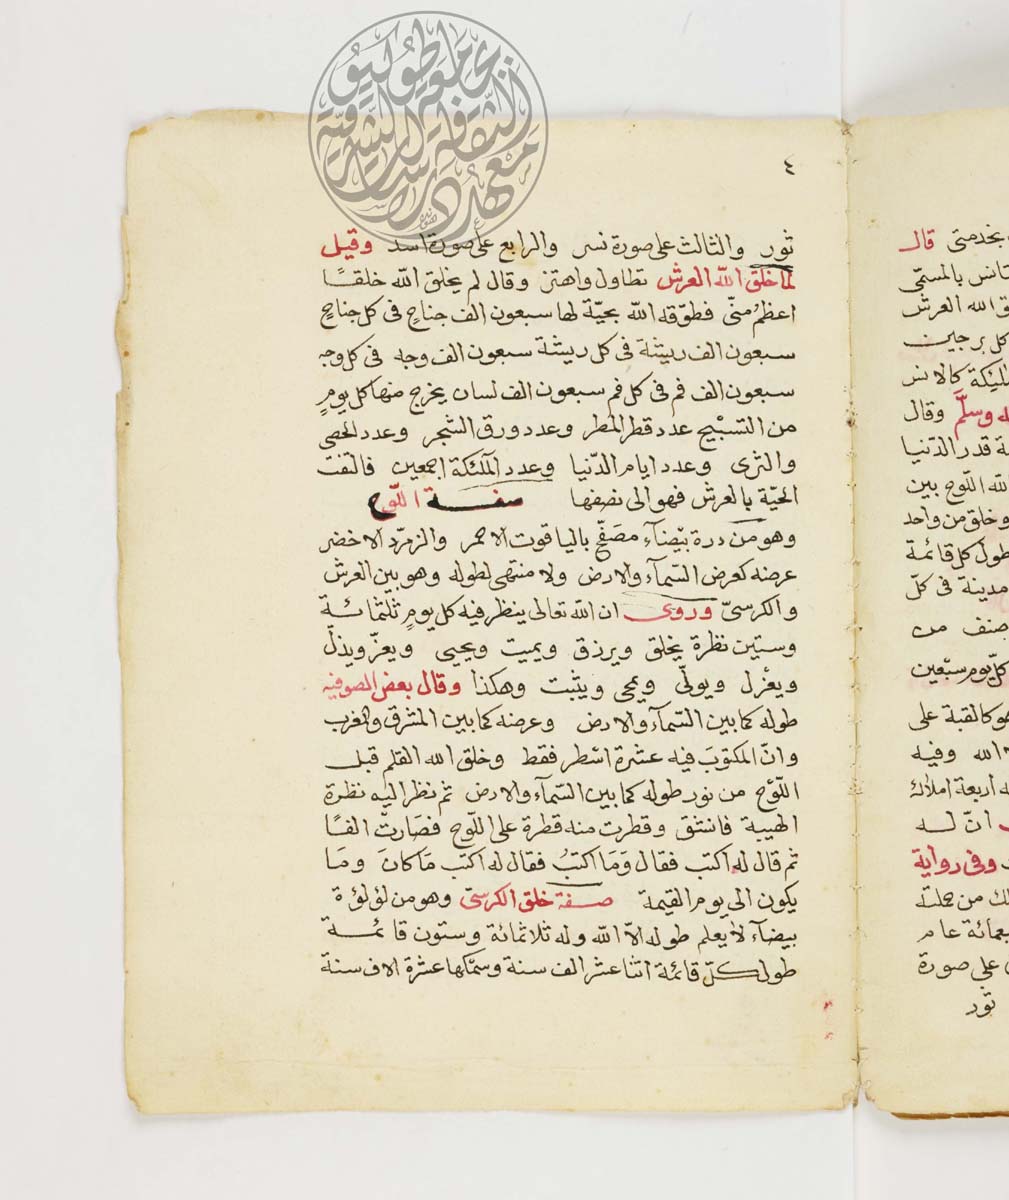 ٤
ثور والثالث على صورة نسر والرابع على صورة اسد وقيل
لما خلق الله العرش تطاول واهتز وقال لم يخلق الله خلقًا
اعظمُ منّى فطوّقه الله بحيّة لها سبعون الف جناحٍ فى كل جناحٍ
سبعون الف ريشة فى كل ريشة سبعون الف وجه فى كل وجه
سبعون الف فم فى كل فم سبعون الف لسان يخرج منها كل يومٍ
من التسبيح عدد قطر المطر وعدد ورق الشجر وعدد الحصى
والثرى وعدد ايام الدّنيا وعدد الملٓئكة اجمعين فالتفت
الحيّة بالعرش فهو الى نصفها صفة اللّوح
وهو من درة بيْضآء مصَفّح بالياقوت الاحمر والزمرّد الاخضر
عرضه كعرض السّمآء والارض ولا منتهى لطوله وهو بين العرش
والكرسىّ وروى ان الله تعالى ينظر فيه كل يومٍ ثلثمائة
وستين نظرة يخلق ويرزق ويميت ويحيى ويعزّ ويذلّ
ويعزل ويولّى ويمحى ويثبت وهكذا وقال بعض الصوفيه
طوله كما بين السّمآء والارض وعرضه كما بين المشرق والمغرب
وانّ المكتوبَ فيه عشرة اسْطر فقط وخلق الله القلم قبل
اللّوْح من نور طوله كما بين السّمآء والارض ثم نظر اليه نظرة
الهيبة فانشق وقطرت منه قطرة على اللّوح فصَارتْ الفًا
ثم قال له اكتب فقال وَمَا اكتبُ فقال له اكتب مَا كانَ ومَا
يكون الى يوم القيمة صفة خلق الكرسىّ وهو من لؤلؤة
بيضآء لا يعلم طوله الاّ الله وله ثلاثمائة وستون قائمة
طول كلّ قائمة اثنا عشر الف سنة وسمكها عشرة الاف سنة
بخدمتى قال
بالمسمّى
الله العرش
كل برجين
كالانس
وسلّم وقال
قدر الدّنيا
الله اللّوح بين
وخلق من واحد
طول كل قائمة
مدينة فى كلّ
صنف من
كلّ يوم سبْعين
هو كالقبة على
الله وفيه
أربعة املاك
انّ له
وفى رواية
من حملة
عام
على صورة
ثور